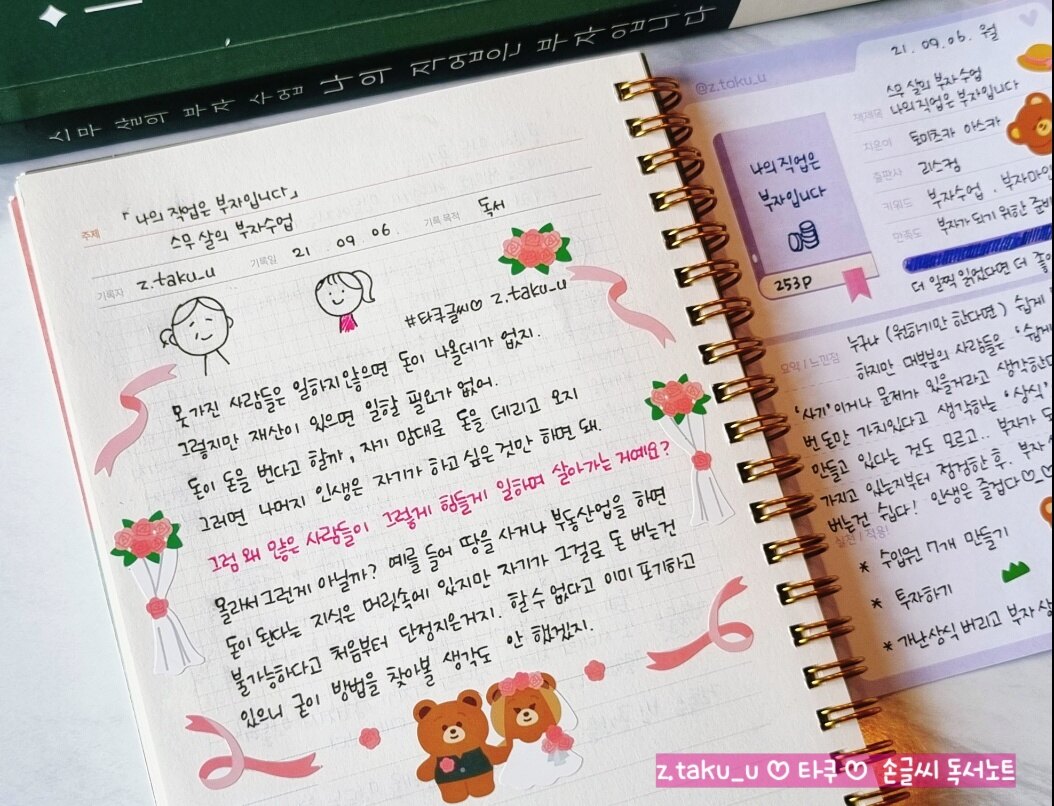 스무 살의 부자 수업 나의 직업은 부자입니다
주제 「나의 직업은 부자입니다」
스무 살의 부자수업
기록자 z.taku_u 기록일 21 . 09 . 06. 기록 목적 독서
#타쿠글씨♡ z.taku_u
못 가진 사람들은 일하지않으면 돈이 나올데가 없지.
그렇지만 재산이 있으면 일할 필요가 없어.
돈이 돈을 번다고 할까, 자기 맘대로 돈을 데리고 오지
그러면 나머지 인생은 자기가 하고싶은것만 하면 돼.
그럼 왜 많은 사람들이 그렇게 힘들게 일하며 살아가는 거예요?
몰라서그런게 아닐까? 예를 들어 땅을 사거나 부동산업을 하면
돈이 된다는 지식은 머릿속에 있지만 자기가 그걸로 돈 버는건
불가능하다고 처음부터 단정지은거지. 할 수 없다고 이미 포기하고
있으니 굳이 방법을 찾아볼 생각도 안 했겠지.
@z.taku_u
21. 09. 06. 월
스무 살의 부자수업
책제목 나의직업은 부자입니다
지은이 토미츠카 아스카
출판사 리스컴
키워드 부자수업 . 부자마인
만족도 부자가 되기 위한 준비
나의 직업은
부자입니다
253p
더 일찍 읽었다면 더 좋
요약 / 느낀점
누구나 (원하기만 한다면) 쉽게
하지만 대부분의 사람들은 '쉽게
'사기'이거나 문제가 있을거라고 생각하한다
번돈만 가치있다고 생각하는 '상식'
만들고 있다는 것도 모르고.. 부자가 되
가지고 있는지부터 점검한 후. 부자
버는건 쉽다! 인생은 즐겁다♡_♡
실천 / 적용!
* 수입원 7개 만들기
* 투자하기
* 가난상식 버리고 부자 상
z.taku_u ♡ 타쿠 ♡ 손글씨 독서노트